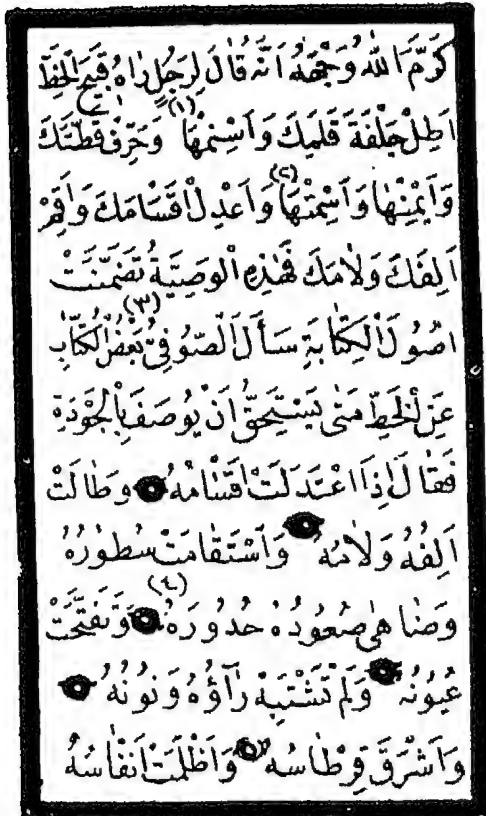 كَرَّمَ اَللهُ وَجْهَهُ اَنَّهُ قَالَ لِرَجُلٍ رَاٰهُ قَبِيحَ الْخَطِّ
اَطِلْ جِلْفَةَ قَلَمِكَ وَاَسْمِنْهَا (١) وَحَرِّفْ قَطَّتَكَ
وَاَيْمِنْهَا وَاَسْمِتْهَا (٢) وَاَعْدِلْ اَقْسَامَكَ وَاَقِمْ
اَلِفَكَ وَلَامَكَ فَهٰذِهِ الْوَصِيَّةُ تَضَمَّنَتْ
اُصُولَ الْكِتَابَةِ (٣) سَأَلَ الصُّوفِيُّ بَعْضُ الْكُتَّابِ
عَنِ الْخَطِّ مَتٰى يَسْتَحِقُّ اَنْ يُوصَفَ بِالْجَوْدَةِ
فَقَالَ اِذَا اعْتَدَلَتْ اَقْسَامُهُ وَطَالَتْ
اَلِفُهُ وَلَامُهُ وَاَسْتَقَامَتْ سُطُورُهُ
وَضَاهٰى صُعُودُهُ حُدُورَهُ (٤) وَتَفَتَّحَتْ
عُيُونُهُ وَلَمْ تَشْتَبِهْ رَآؤُهُ وَنُونُهُ
وَاَشْرَقَ قِرْطَاسُهُ وَاَظْلَمَتْ اَنْفَاسُهُ